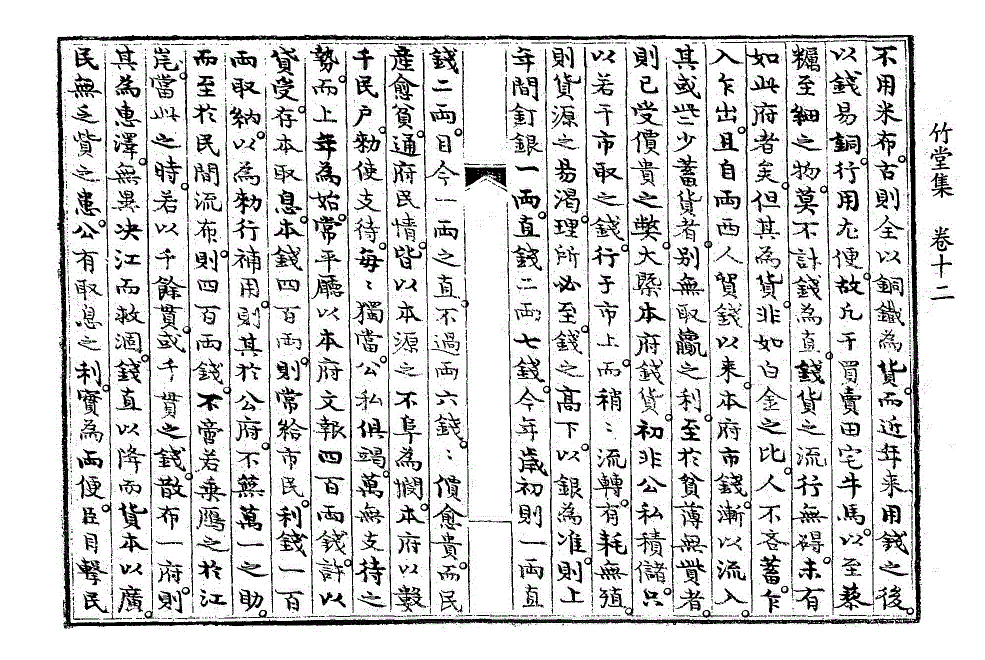 竹堂集 卷十二
不用米布。古則全以銅鐵為貨。而近年来用錢之後。
以錢易銅。行用尤便。故凡于買賣田宅牛馬。以至藜
糲至細之物。莫不計錢為直。錢貨之流行無碍。未有
如此府者矣。但其為貨。非如白金之比。人不吝蓄。乍
入乍出。且自両西人貿錢以来。本府市錢。漸以流入。
其或些少蓄貨者。別無取贏之利。至於貧薄無貲者。
則已受價貴之弊。大槩本府錢貨。初非公私積儲。只
以若干市取之錢。行于市上。而稍〻流轉。有耗無殖。
則貨源之易渴。理所必至。錢之高下。以銀為准。則上
年間釘銀一両。直錢二両七錢。今年歲初則一両直
錢二両。目今一両之直。不過両六錢。錢價愈貴。而民
產愈貧。通府民情。皆以本源之不阜為憫。本府以數
千民戶。勑使支待。每〻獨當。公私俱竭。萬無支待之
勢。而上年為始。常平廳以本府文報四百両錢。許以
貸受。存本取息。本錢四百両。則常給市民。利錢一百
両取納。以為勑行補用。則其於公府。不無萬一之助。
而至於民間流布。則四百両錢。不啻若乗鴈之於江
崖。當此之時。若以千餘貫。或千貫之錢。散布一府。則
其為惠澤。無異决江而救涸。錢直以降。而貨本以廣。
民無乏貨之患。公有取息之利。實為両便。臣目擊民